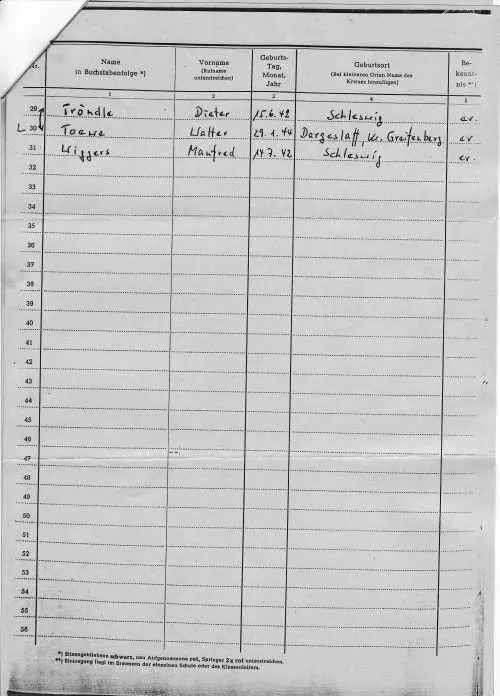 Nr. Name in Buchstabenfolge *) Vorname (Rufname unterstreichen) Geburts- Tag, Monat, Jahr Geburtsort (Bei kleineren Orten Name des Kreises hinzufügen) Be- kennt- nis **)
1 2 3 4 5
29 Tröndle Dieter 15.6.42 Schleswig ev.
L 30 Toewe Walter 29.1.44 Dargeslaff, Kr. Greifenberg ev
31 Wiggers Manfred 14.7.42 Schleswig ev.
32
33
34
35
36
37
38
39
40
41
42
43
44
45
46
47
48
49
50
51
52
53
54
55
56
*) Sitzengebliebene schwarz, neu Aufgenommene rot, Springer 2x rot unterstreichen.
**) Eintragung liegt im Ermessen der einzelnen Schule oder des Klassenleiters.